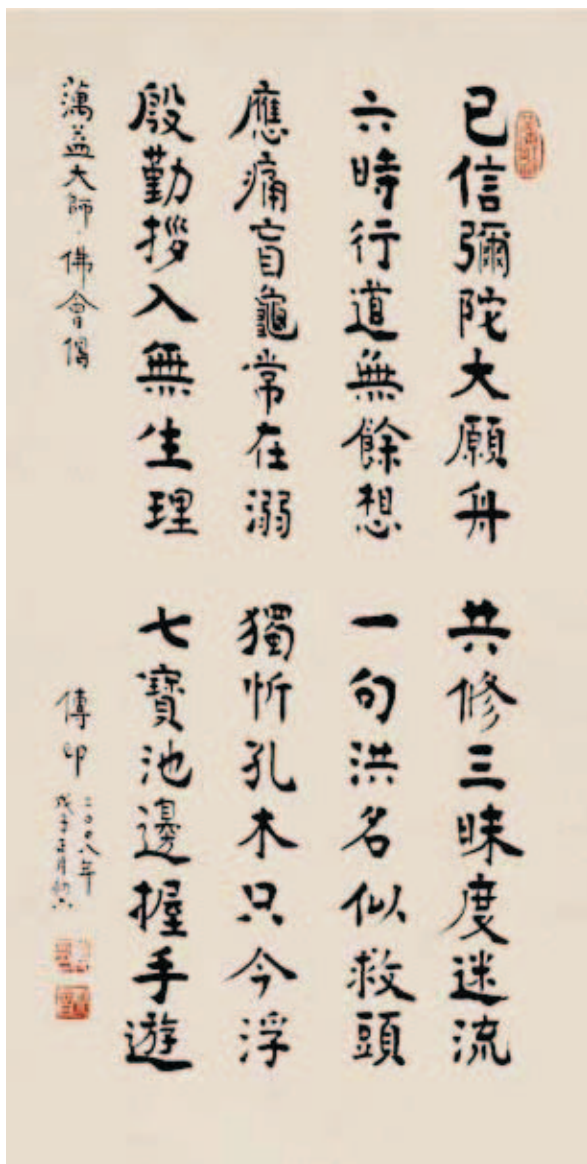 已信彌陀大願舟 共修三昧度迷流
六時行道無餘想 一句洪名似救頭
應痛盲龜常在溺 獨忻孔木只今浮
殷勤拶入無生理 七寶池邊握手遊
蕅益大師·佛會偈
傳印
二〇〇八年
戊子正月初六